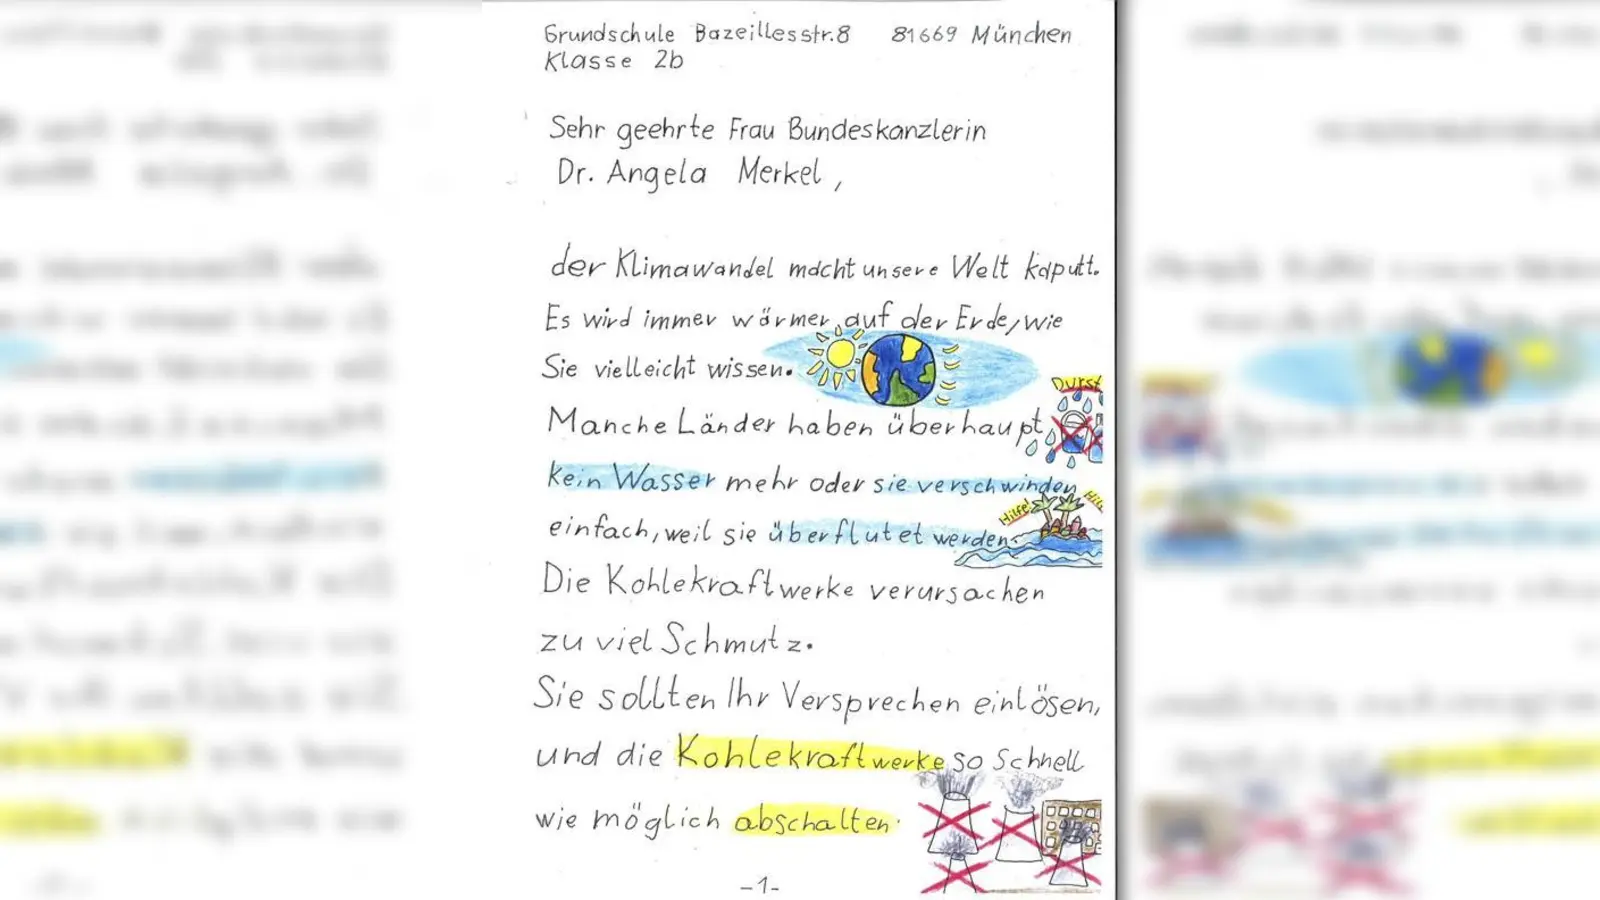 Grundschule Bazeillesstr.8 81669 München
Klasse 2b
Sehr geehrte Frau Bundeskanzlerin
Dr. Angela Merkel,
der Klimawandel macht unsere Welt kaputt.
Es wird immer wärmer auf der Erde, wie
Sie vielleicht wissen.
Durst
Manche Länder haben überhaupt
kein Wasser mehr oder sie verschwinden
Hilfe!
einfach, weil sie überflutet werden.
Die Kohlekraftwerke verursachen
zu viel Schmutz.
Sie sollten Ihr Versprechen einlösen,
und die Kohlekraftwerke so Schnell
wie möglich abschalten.
-1-